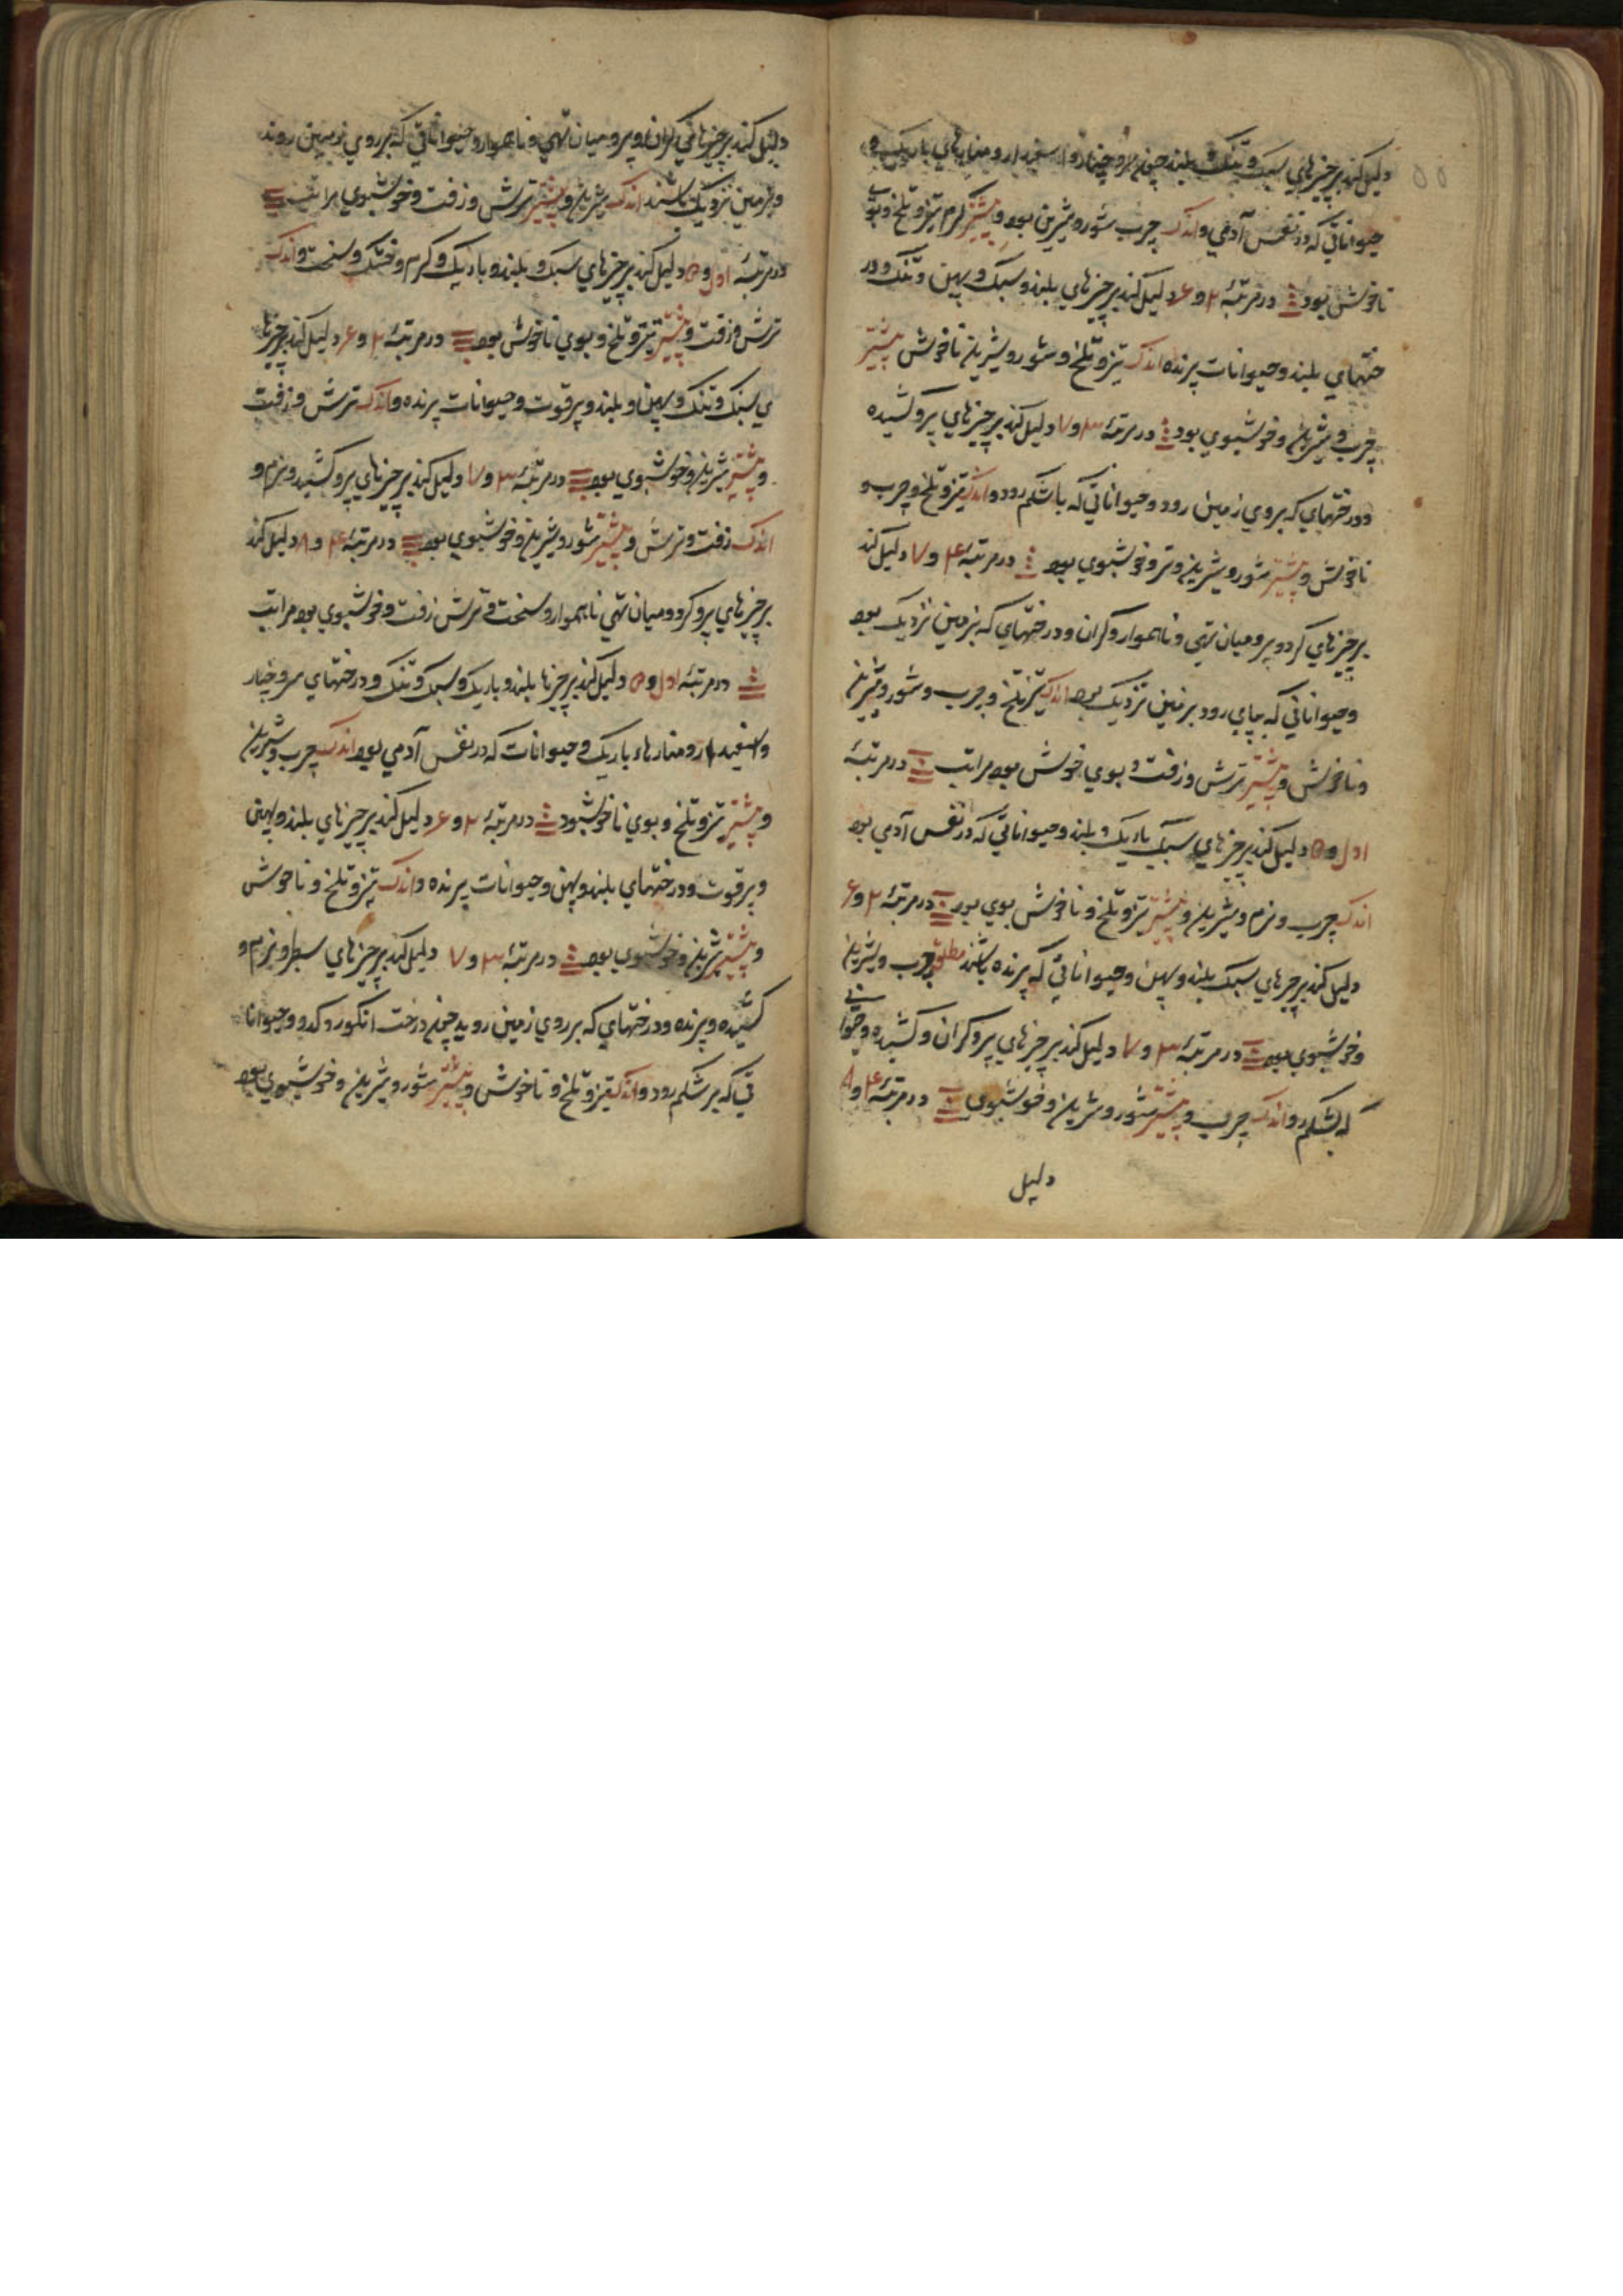 ۵۵
دلیل کند بر چیزهای سبک و تنک و بلند چون سرو و چنار و اسفیدار و منارهای باریک و
حیواناتی که در نفس آدمی و اندک چرب شور و شیرین بود و بیشتر گرم تیز و تلخ و بوی
ناخوش بود در مرتبهٔ ۲ و ۶ دلیل کند بر چیزهای بلند و سبک و پهن و تنک و در
ختهای بلند و حیوانات پرنده اندک تیز و تلخ و شور و شیرین ناخوش بیشتر
چرب و شیرین و خوشبوی بود در مرتبهٔ ۳ و ۷ دلیل کند بر چیزهای پر و کشیده
و درختهای که بروی زمین رود و حیواناتی که باشکم رود و اندک تیز و تلخ و چرب و
ناخوش و بیشتر شور و شیرین و تر و خوشبوی بود در مرتبهٔ ۴ و ۷ دلیل کند
بر چیزهای کرد و پر و میان تهی و ناهموار و کران و درختهای که بزمین نزدیک بود
و حیواناتی که بپای رود بر زمین نزدیک بود اندک تیز تلخ و چرب و شور و شیرین
و ناخوش و بیشتر ترش و زفت و بوی خوش بود مراتب در مرتبهٔ
اول و ۵ دلیل کند بر چیزهای سبک باریک و بلند و حیواناتی که در نفس آدمی بود
اندک چرب و نرم و شیرین و بیشتر تیز و تلخ و ناخوش بوی بود در مرتبهٔ ۲ و ۶
دلیل کند بر چیزهای سبک بلند و پهن و حیواناتی که پرنده باشند مطلق چرب و شیرین
و خوشبوی بود در مرتبهٔ ۳ و ۷ دلیل کند بر چیزهای پر و کران و کشیده و حیوانی
که بشکم رود اندک چرب و بیشتر شور و شیرین و خوشبوی در مرتبهٔ ۴ و ۸
دلیل
دلیل کند بر چیزهای کران و پر و میان تهی و ناهموار و حیواناتی که بر روی زمین روند
و بزمین نزدیک باشند اندک شیرین و بیشتر ترش و زفت و خوشبوی مراتب
در مرتبهٔ اول و ۵ دلیل کند بر چیزهای سبک و بلند و باریک و کرم و خشک و سخت و اندک
ترش و زفت و بیشتر تیز و تلخ و بوی ناخوش بود در مرتبهٔ ۲ و ۶ دلیل کند بر چیزها
ی سبک و تنک و پهن و بلند و پر قوت و حیوانات پرنده و اندک ترش و زفت
و بیشتر شیرین و خوشبوی بود در مرتبهٔ ۳ و ۷ دلیل کند بر چیزهای پر و کشید و نرم و
اندک زفت و ترش و بیشتر شور و شیرین و خوشبوی بود در مرتبهٔ ۴ و ۸ دلیل کند
بر چیزهای پر و کرد و میان تهی ناهموار و سخت و ترش زفت و خوشبوی بود مراتب
در مرتبهٔ اول و ۵ دلیل کند بر چیزها بلند و باریک و سبک و تنک و درختهای سرو و چنار
و اسفیدار و منارهاء باریک و حیوانات که در نفس آدمی بود اندک چرب و شیرین
و بیشتر تیز و تلخ و بوی ناخوشبود در مرتبهٔ ۲ و ۶ دلیل کند بر چیزهای بلند و پهن
و پر قوت و درختهای بلند و پهن و حیوانات پرنده و اندک تیز و تلخ و ناخوش
و بیشتر شیرین و خوشبوی بود در مرتبهٔ ۳ و ۷ دلیل کند بر چیزهای سطبر و نرم و
کشیده و پرنده و درختهای که بر روی زمین روید چون درخت انکور و کدو و حیوانا
تی که بر شکم رود و اندک تیز و تلخ و ناخوش و بیشتر شور و شیرین و خوشبوی بود